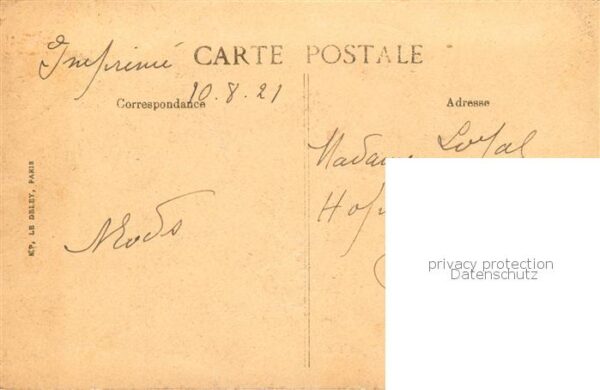 Imprimé
CARTE POSTALE
10.8.21
Correspondance
Adresse
Madame Loyal
EP. LE DELEY, PARIS
privacy protection
Datenschutz